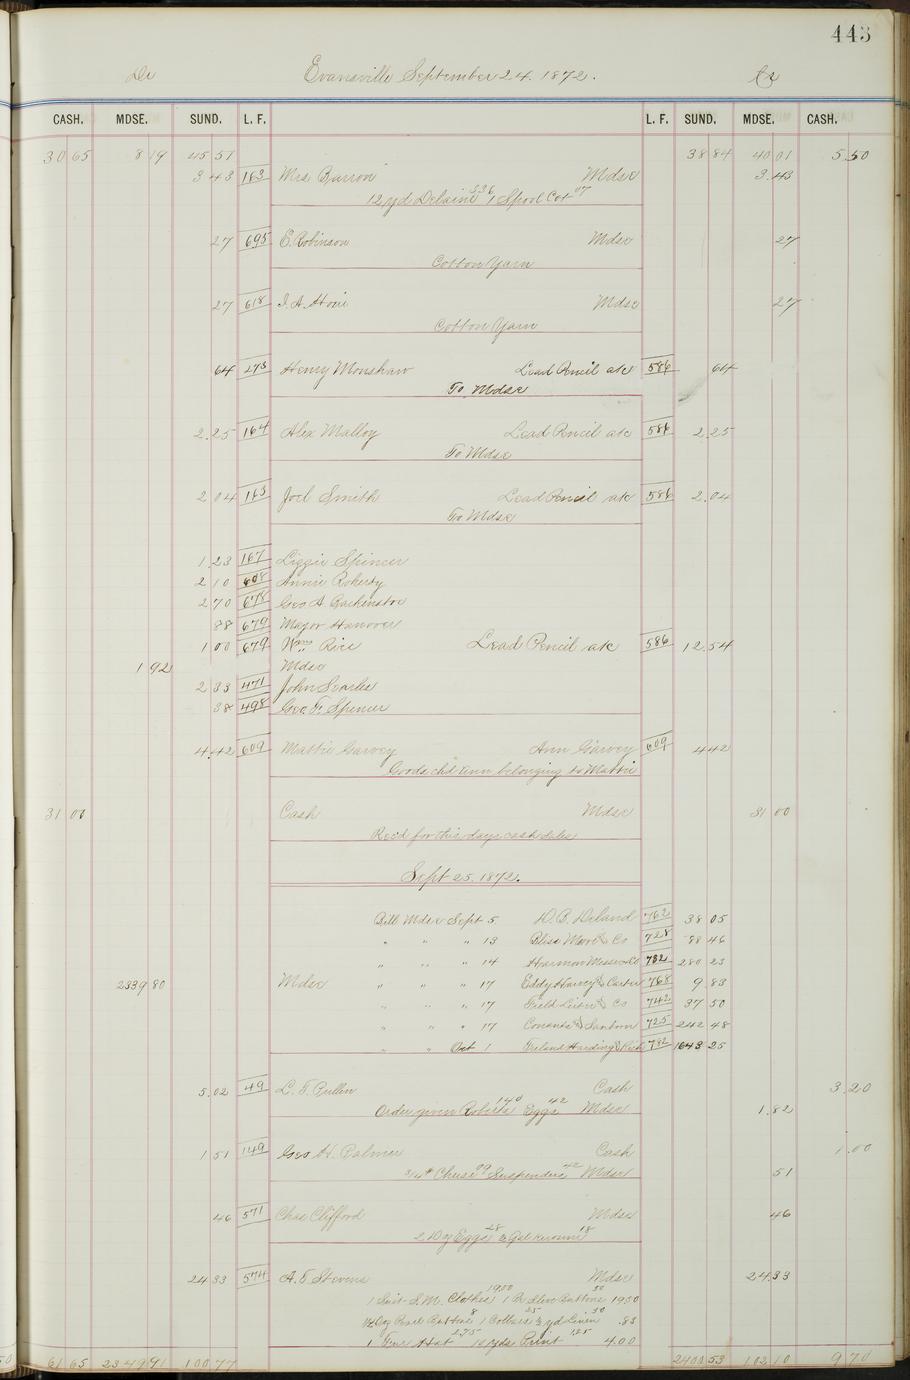 443
Dr Evansville September 24. 1872. Cr
CASH. MDSE. SUND. L. F. L. F. SUND. MDSE. CASH.
30 65 8 19 45 51 38 84 40 01 5 50
3 43 163 Mrs Barron Mdse 3.43
12 yd Delaine 336 1 Spool Cot 07
27 695 E. Robinson Mdse 27
Cotton Yarn
27 618 Mdse 27
Cotton Yarn
64 273 Henry Monshaw Lead Pencil a/c 586 64
To Mdse
2.25 164 Alex Malloy Lead Pencil a/c 586 2.25
To Mdse
2 04 163 Joel Smith Lead Pencil a/c 586 2.04
To Mdse
1 23 167 Lizzie Spencer
2 10 608 Annie Roherty
2 70 678 Geo A. Backenstoe
88 679 Major Hanover
1 00 679 Wm Rice Lead Pencil a/c 586 12.54
1 92 Mdse
2 33 471 John Searles
38 498 Geo. F. Spencer
4.42 609 Mattie Garvey Ann Garvey 609 4 42
Goods chd Ann belonging to Mattie
31 00 Cash Mdse 31 00
Recd for this days cash sales
Sept 25. 1872.
Bill Mdse Sept 5 D. B. Deland 762 38 05
" " " 13 Bliss Moore & Co 728 88 46
" " " 14 Harmon Messer & Co 732 280 23
2339 80 Mdse " " " 17 Eddy Harvey & Carter 768 9 83
" " " 17 Field Leiter & Co 742 37 50
" " " 17 Conants & Sanborn 725 242 48
" " Oct 1 Ireland Harding & Rich 732 1643 25
5.02 49 L. T. Pullen Cash 3.20
Order given Roberts 140 Eggs 42 Mdse 1.82
1 51 149 Geo H. Palmer Cash 1.00
3/4 # Cheese 09 Suspenders 42 Mdse 51
46 571 Chas Clifford Mdse 46
2 Doz Eggs 28 3 Gal Kerosine 18
24 33 574 A. E. Stevens Mdse 24.33
1 Suit S. M. Clothes 1900 1 Pr Slew Buttons 50 19.50
1/2 Doz Pearl Buttons 8 1 Collars 25 3 yd Linen 50 .83
1 Fine Hat 2.75 10 yds Print 125 4.00
61 65 2349 91 100.77 2400 53 102 10 9 70